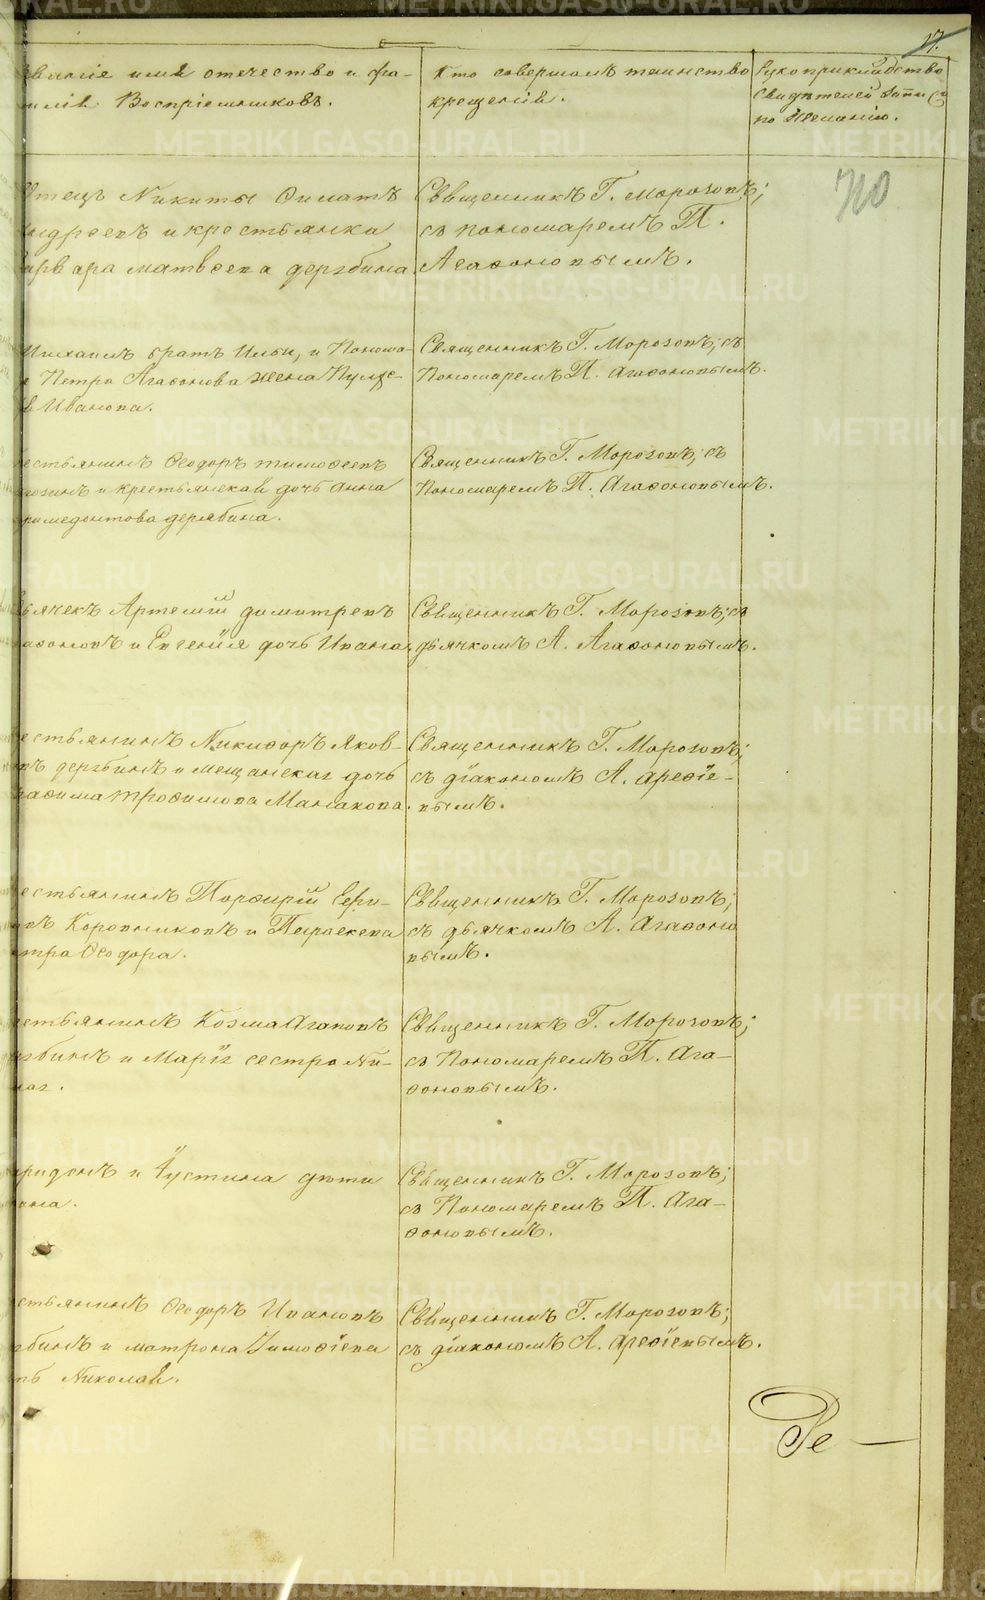 17.
званіе имя отечество и фа-
милія Воспріемниковъ.
Кто совершалъ таинство
крещенія.
Рукоприкладство
свидѣтелей записи
по желанію.
710
Отецъ Никиты
Андреевъ и крестьянка
Варвара Матвѣева дерябина
Священникъ Г. Морозовъ;
съ пономаремъ П.
Агаѳоновымъ.
Михаилъ братъ Ильи, и Понома-
Петра Агаѳонова жена
Иванова.
Священникъ Г. Морозовъ; съ
Пономаремъ П. Агаѳоновымъ.
естьянинъ Ѳеодоръ тимоѳеевъ
и крестьянская дочь Анна
дерябина.
Священникъ Г. Морозовъ; съ
Пономаремъ П. Агаѳоновымъ.
ьячекъ Артемій димитревъ
аѳоновъ и Евгенія дочь Ивана.
Священникъ Г. Морозовъ; съ
дьячкомъ А. Агаѳоновымъ.
естьянинъ Никифоръ Яков-
въ дерябинъ и мещанская дочь
Троѳимова
Священникъ Г. Морозовъ;
съ діакономъ А. Ареѳіе-
вымъ.
естьянинъ Порѳирій
въ Коровниковъ и Параскева
стра Ѳеодора.
Священникъ Г. Морозовъ;
съ дьячкомъ А. Агаѳоно
вымъ.
естьянинъ Козма Агаповъ
рябинъ и Марія сестра Ни-
Священникъ Г. Морозовъ;
съ Пономаремъ П. Ага-
ѳоновымъ.
иридонъ и Іустина дѣти
Священникъ Г. Морозовъ;
съ Пономаремъ П. Ага-
ѳоновымъ.
стьянинъ Ѳеодоръ Ивановъ
рябинъ и матрона Тимоѳіева
Николая.
Священникъ Г. Морозовъ;
съ діакономъ А. Ареѳіевымъ.
Ре —
METRIKI.GASO-URAL.RU